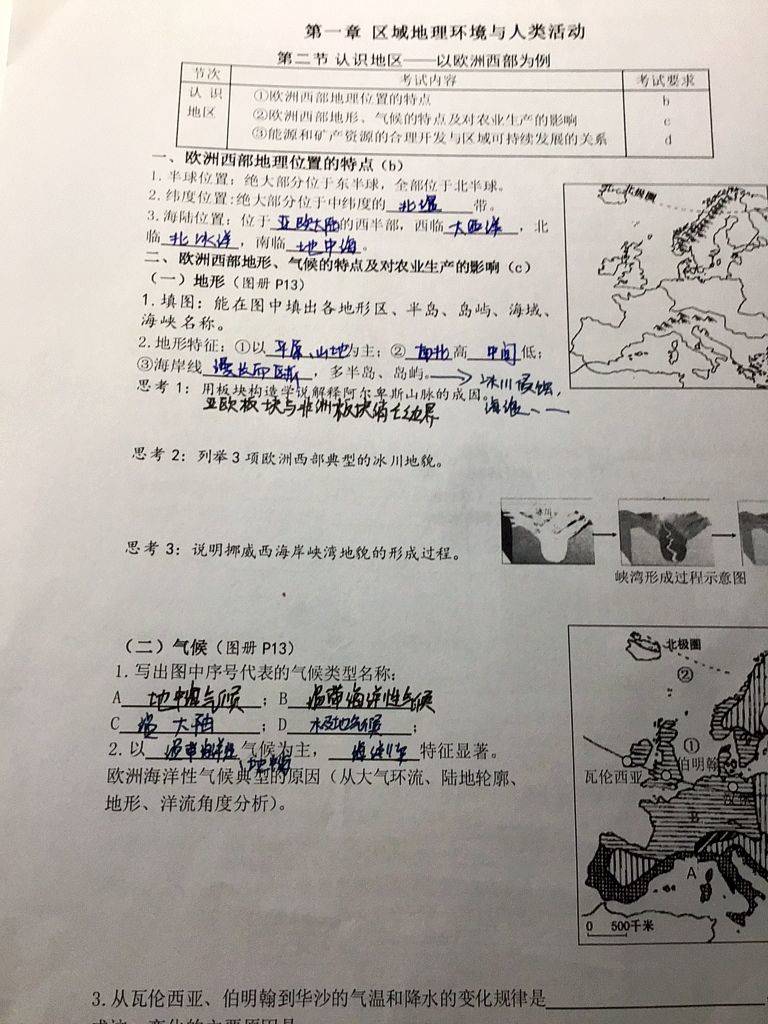 第一章 区域地理环境与人类活动
第二节 认识地区——以欧洲西部为例
节次 考试内容 考试要求
认识地区 ①欧洲西部地理位置的特点 b
②欧洲西部地形、气候的特点及对农业生产的影响 c
③能源和矿产资源的合理开发与区域可持续发展的关系 d
一、欧洲西部地理位置的特点（b）
1. 半球位置：绝大部分位于东半球，全部位于北半球。
2. 纬度位置：绝大部分位于中纬度的 北温 带。
3. 海陆位置：位于 亚欧大陆 的西半部，西临 大西洋 ，北
临 北冰洋 ，南临 地中海 。
二、欧洲西部地形、气候的特点及对农业生产的影响（c）
（一）地形（图册 P13）
1. 填图：能在图中填出各地形区、半岛、岛屿、海域、
海峡名称。
2. 地形特征：①以 平原、山地 为主；② 南北 高 中间 低；
③海岸线 ，多半岛、岛屿。→ 冰川侵蚀，
思考 1：用板块构造学说解释阿尔卑斯山脉的成因。
亚欧板块与非洲板块消亡边界
思考 2：列举 3 项欧洲西部典型的冰川地貌。
思考 3：说明挪威西海岸峡湾地貌的形成过程。
冰川
峡湾形成过程示意图
（二）气候（图册 P13）
1. 写出图中序号代表的气候类型名称：
A 地中海气候 ；B 温带海洋性气候
C 温 大陆 ；D 极地气候 ；
2. 以 温带海洋性 气候为主， 海洋性 特征显著。
、地中海
欧洲海洋性气候典型的原因（从大气环流、陆地轮廓、
地形、洋流角度分析）。
3. 从瓦伦西亚、伯明翰到华沙的气温和降水的变化规律是
北极圈
北极圈
②
①
瓦伦西亚
伯明翰
B
A
0 500千米